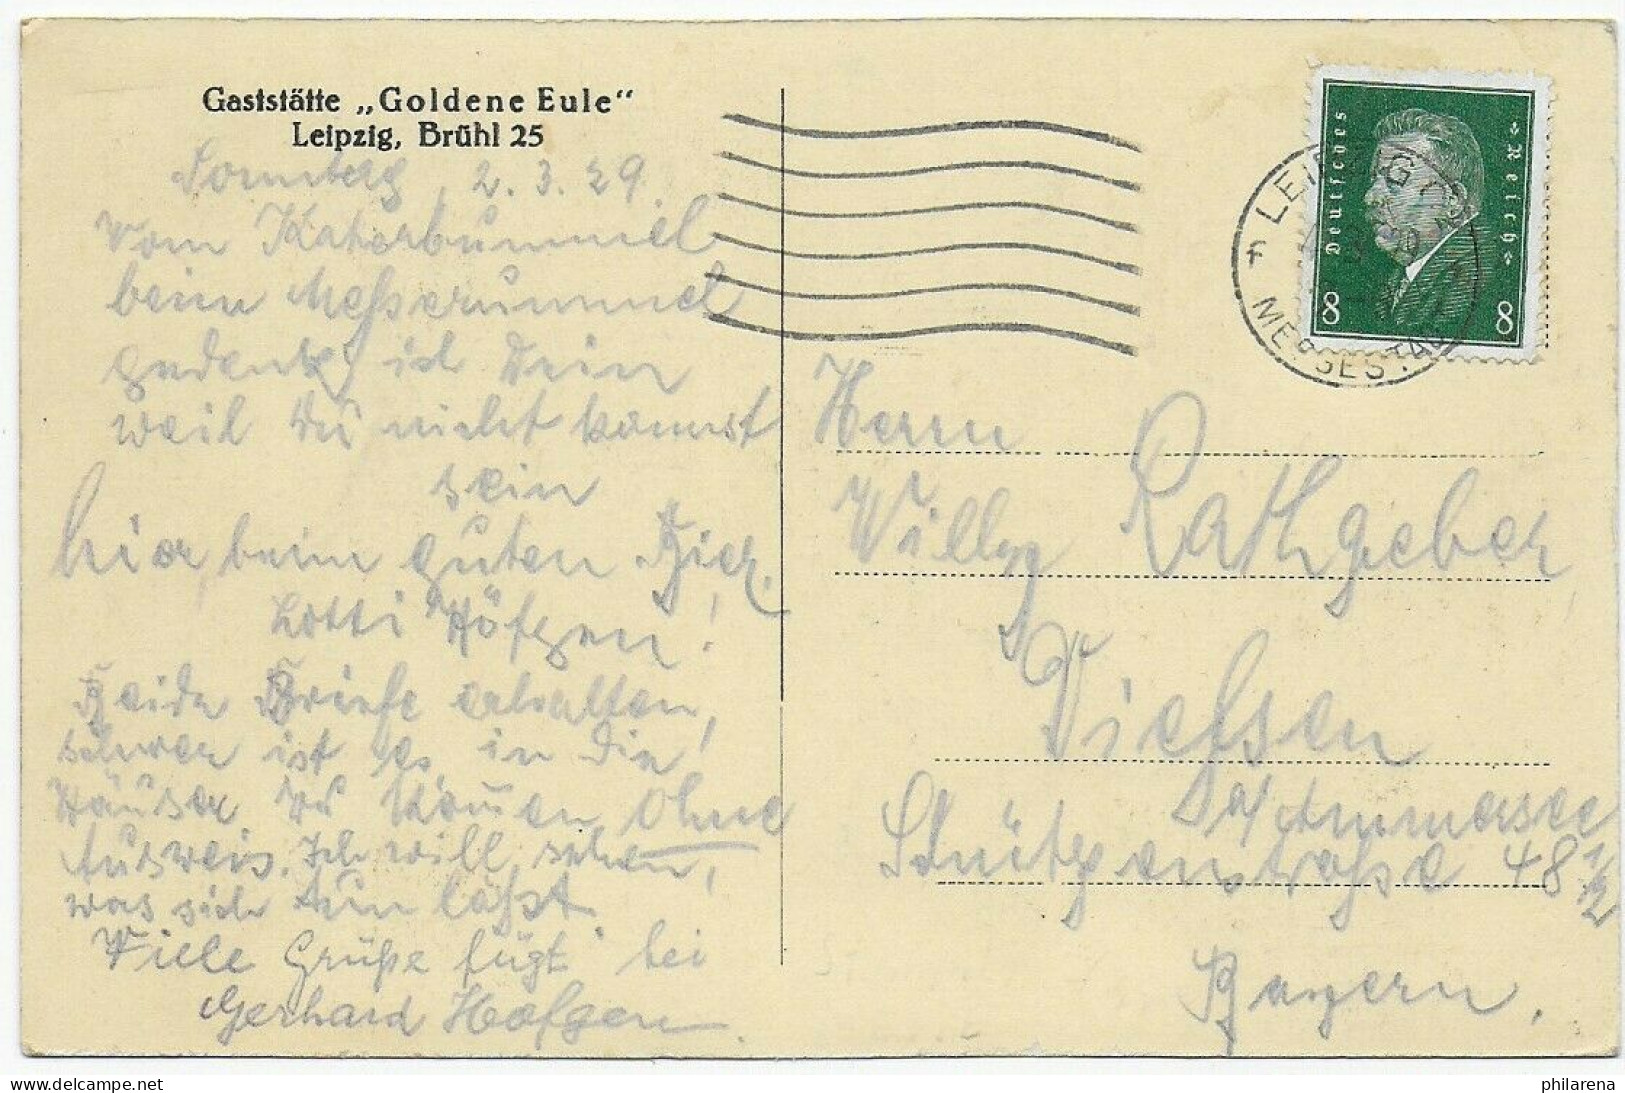 Gaststätte „Goldene Eule“
Leipzig, Brühl 25
Sonntag, 2.3.29.
Vom Katerbummel
beim Messerummel
gedenke ich Dein
weil Du nicht kannst
sein
hier beim guten Bier.
Lotti Höfgen!
Beide Briefe erhalten,
schwer ist es in die
Häuser zu kom̅en ohne
Ausweis. Ich will sehen,
was sich tun läßt.
Viele Grüße fügt bei
Gerhard Höfgen
Deutsches Reich
8 8
LEIPZIG
MESSESTADT
Herrn
Willy Rathgeber
Dießen
a/Ammersee
Schützenstraße 48 1/2
Bayern.
philarena